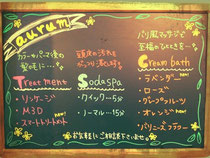 aurum
カラーやパーマ後の
髪の毛に…
Treatment
・リンケージ
・M3D
・スマートリートメント
頭皮の汚れを
Sodaspa
・クイック…5分
・ノーマル…15分
バリ風マッサージで
至福のひとときを…
Creambath
・ラベンダー
・ローズ
・グレープフルーツ
・オレンジ
・バリニーズフラワー
お気軽にご相談下さいませ。